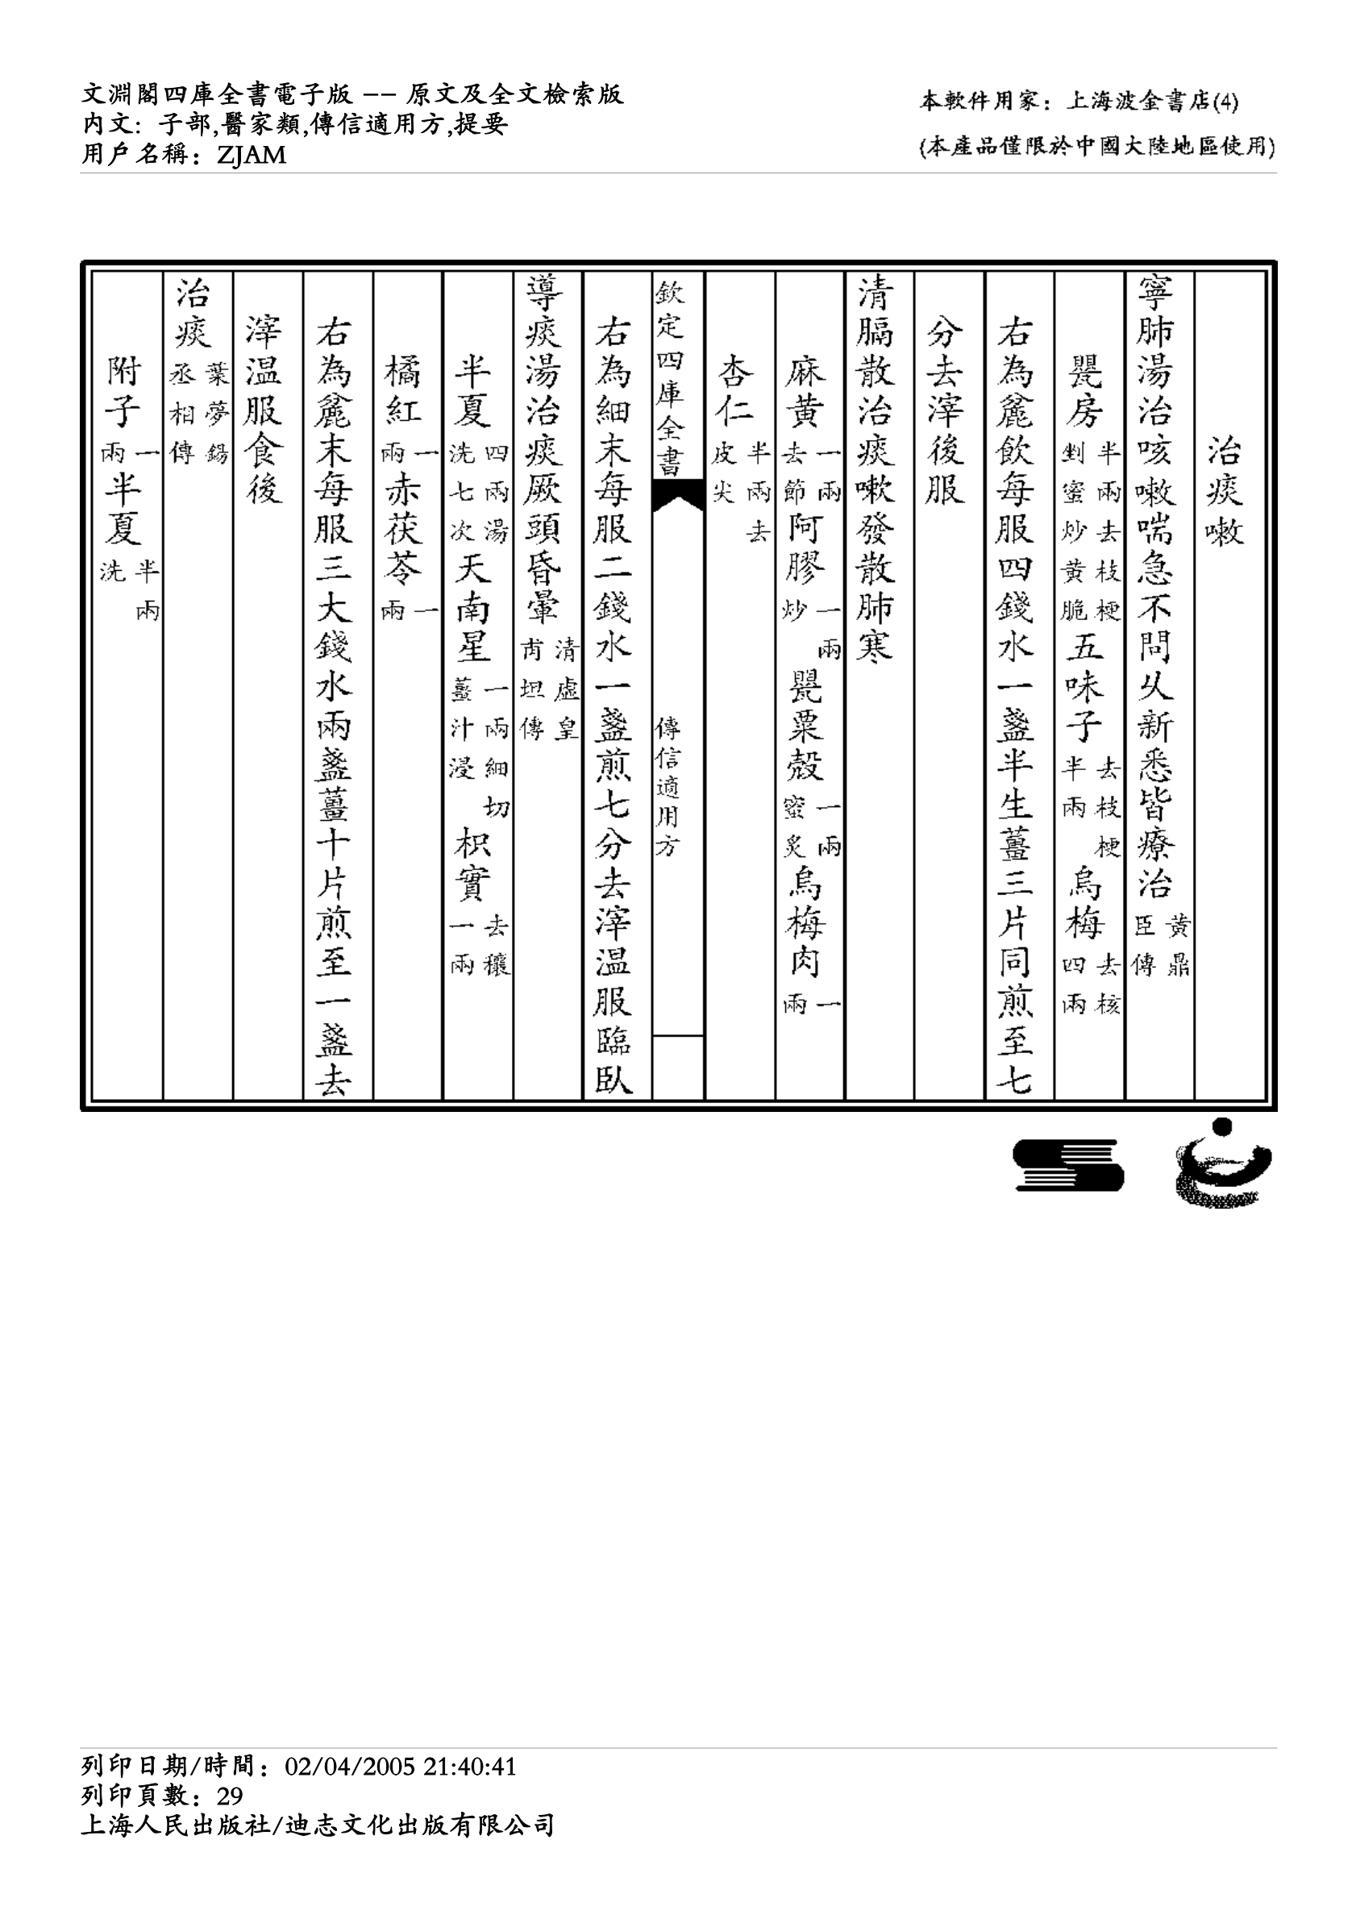 文淵閣四庫全書電子版 -- 原文及全文檢索版
内文: 子部,醫家類,傳信適用方,提要
用戶名稱: ZJAM
本軟件用家: 上海波金書店(4)
(本產品僅限於中國大陸地區使用)
治痰嗽
寧肺湯治咳嗽喘急不問乆新悉皆療治黃鼎臣傳
甖房半兩去枝梗剉蜜炒黃脆五味子去枝梗半兩烏梅去核四兩
右為麄飲每服四錢水一盞半生薑三片同煎至七
分去滓後服
清膈散治痰嗽發散肺寒
麻黃一兩去節阿膠一兩炒甖粟殼一兩蜜炙烏梅肉一兩
杏仁半兩去皮尖
欽定四庫全書 傳信適用方
右為細末每服二錢水一盞煎七分去滓温服臨臥
導痰湯治痰厥頭昏暈清虛皇甫坦傳
半夏四兩湯洗七次天南星一兩細切薑汁浸枳實去穰一兩
橘紅一兩赤茯苓一兩
右為麄末每服三大錢水兩盞薑十片煎至一盞去
滓温服食後
治痰葉夢錫丞相傳
附子一兩半夏半兩洗
列印日期/時間: 02/04/2005 21:40:41
列印頁數: 29
上海人民出版社/迪志文化出版有限公司